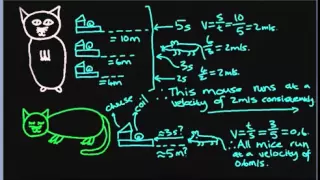 5s V=s/t=10/5=2m/s.
=10m
6/3=2m/s.
=6m
3s
2s
=2m/s.
=4m
∴This mouse runs at a
velocity of 2m/s consistently
cheese
≈3s?
V=s/t=3/5=0,6.
≈5m?
∴All mice run
at a velocity of
0.6m/s.